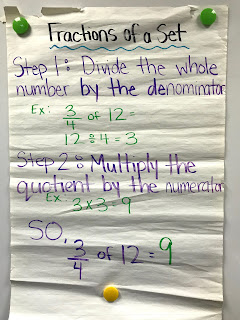 Fractions of a Set
Step 1: Divide the whole
number by the denominator
Ex: 3/4 of 12 =
12 ÷ 4 = 3
Step 2: Multiply the
quotient by the numerator
Ex: 3 x 3 = 9
SO, 3/4 of 12 = 9